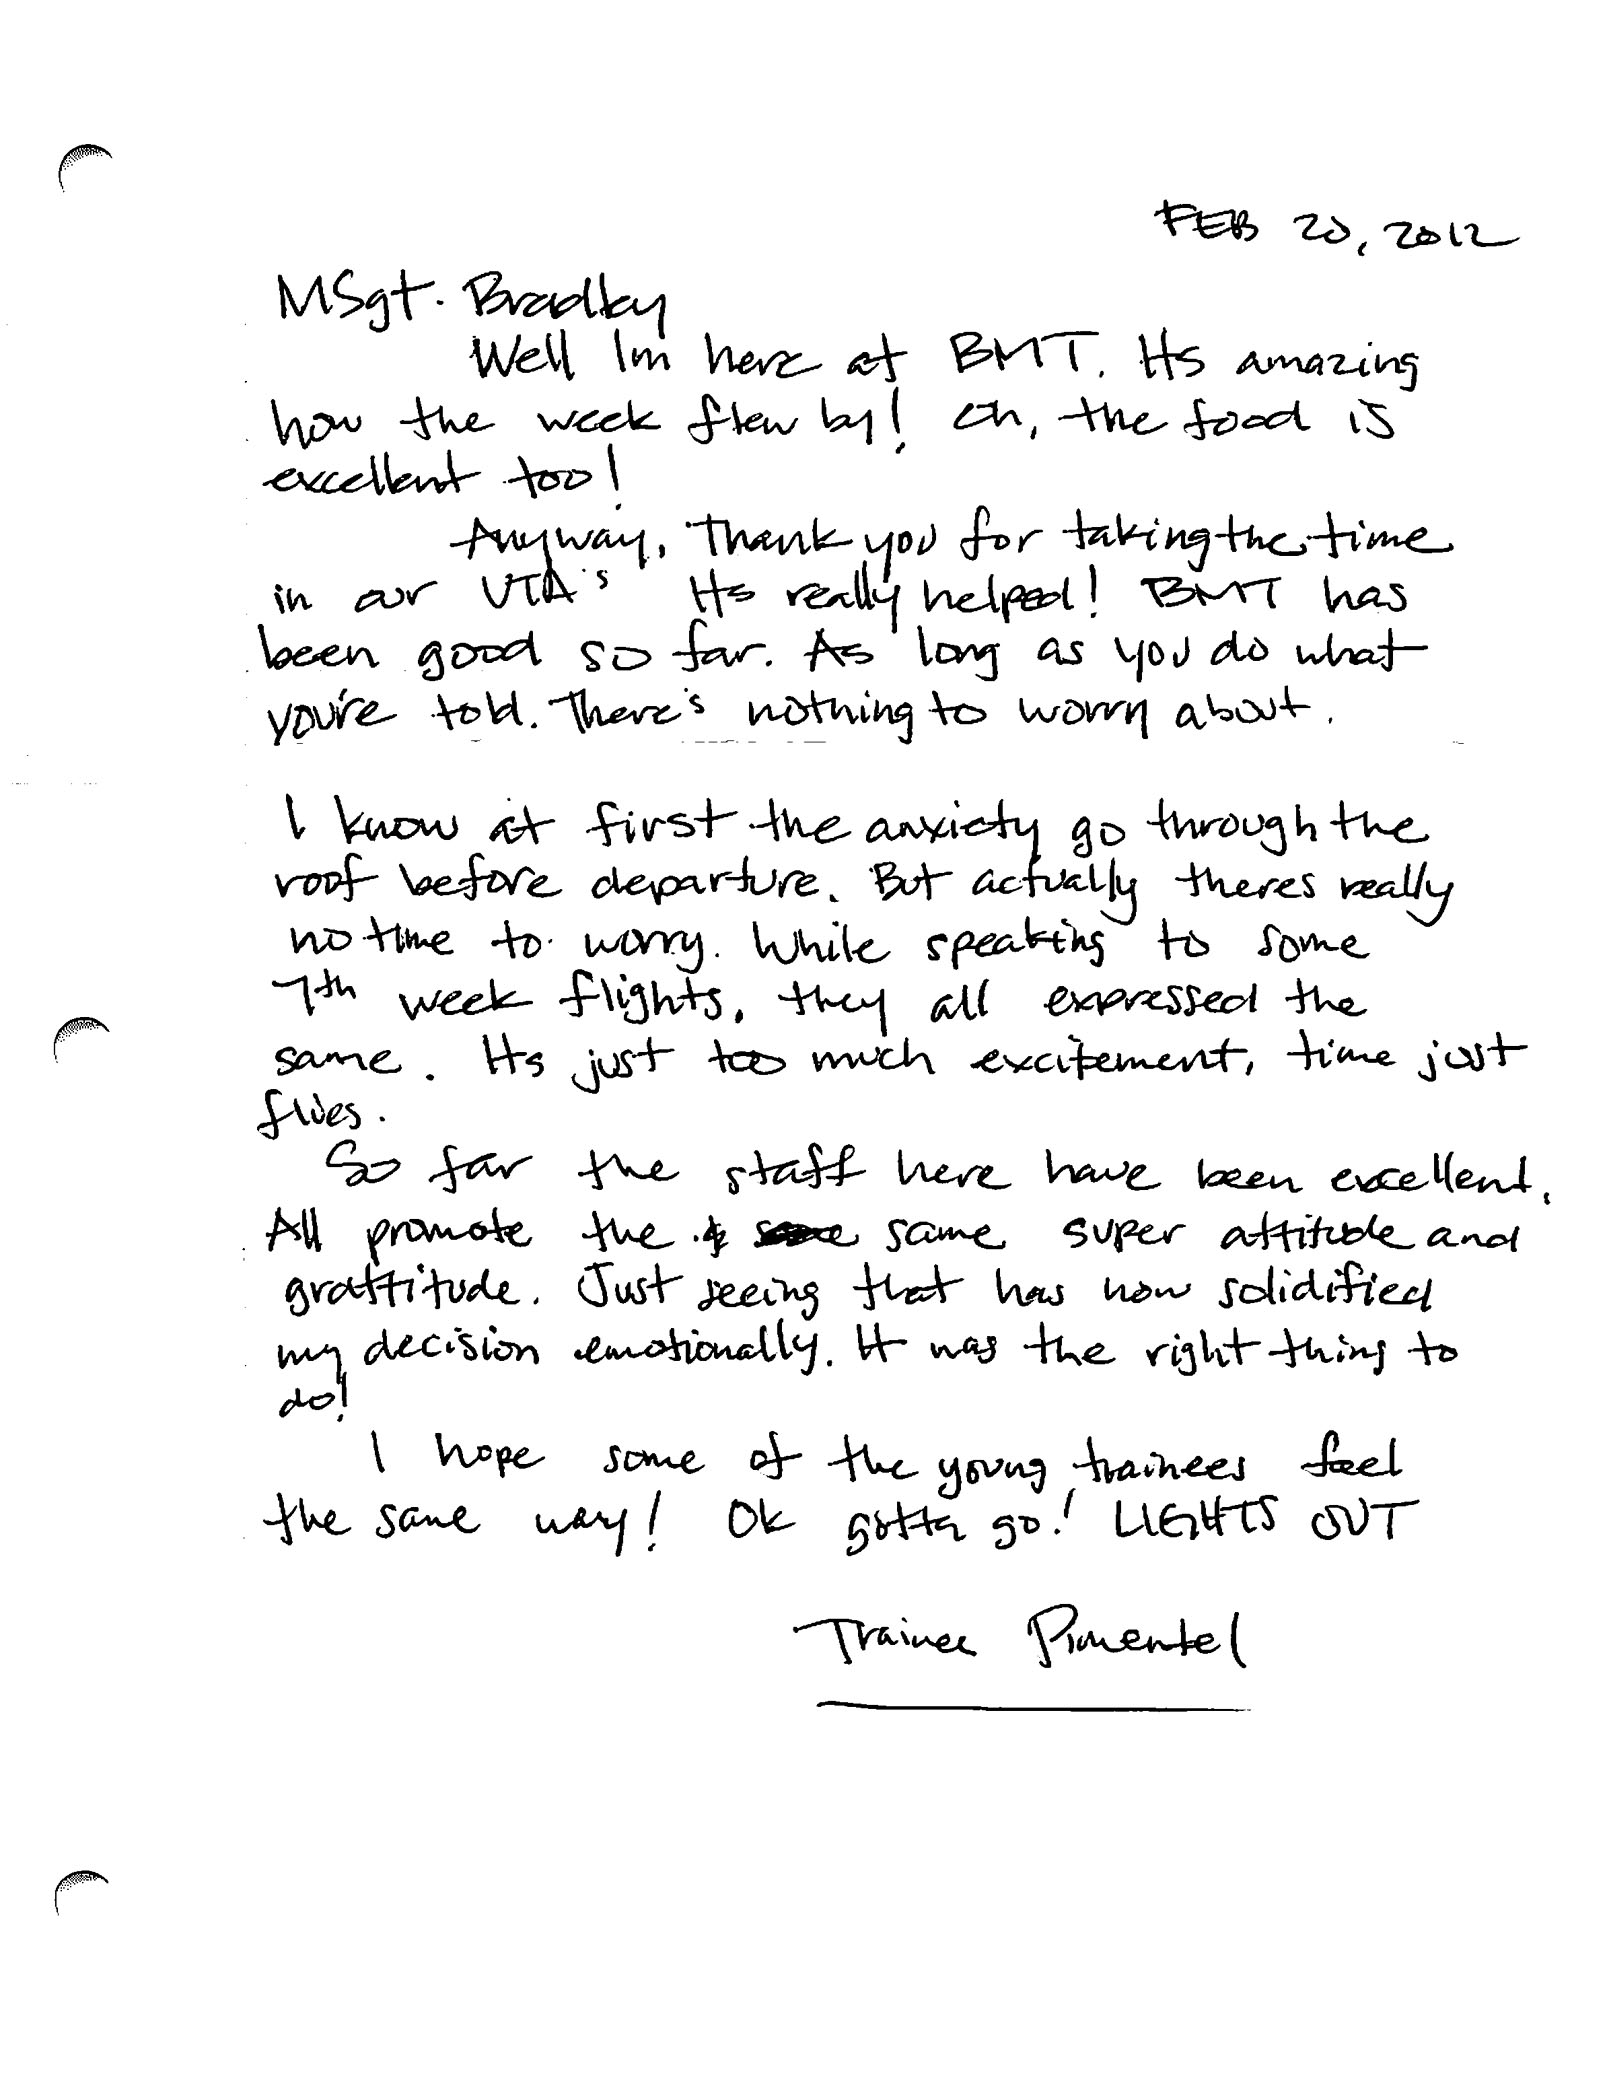 FEB 20, 2012
MSgt. Bradley
Well Im here at BMT. Its amazing
how the week flew by! Oh, the food is
excellent too!
Anyway, Thank you for taking the time
in our UTA's Its really helped! BMT has
been good so far. As long as you do what
you're told. There's nothing to worry about.
I know at first the anxiety go through the
roof before departure. But actually theres really
no time to worry. While speaking to some
7th week flights, they all expressed the
same. Its just too much excitement, time just
flies.
So far the staff here have been excellent.
All promote the same super attitude and
grattitude. Just seeing that has now solidified
my decision emotionally. It was the right thing to
do!
I hope some of the young trainees feel
the same way! Ok gotta go! LIGHTS OUT
Trainee Pimentel